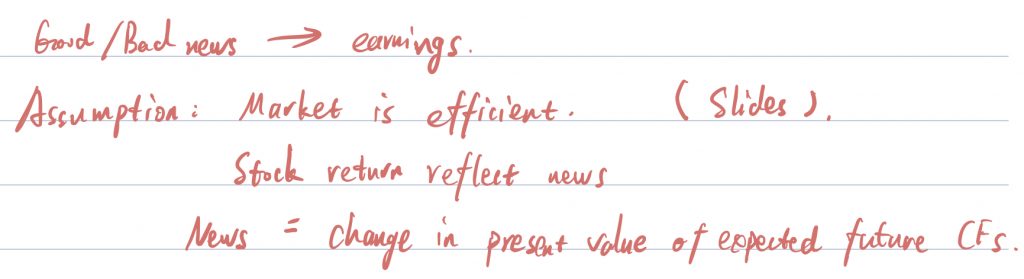 Good/Bad news → earnings.
Assumption: Market is efficient. (Slides).
Stock return reflect news
News = change in present value of expected future CFs.